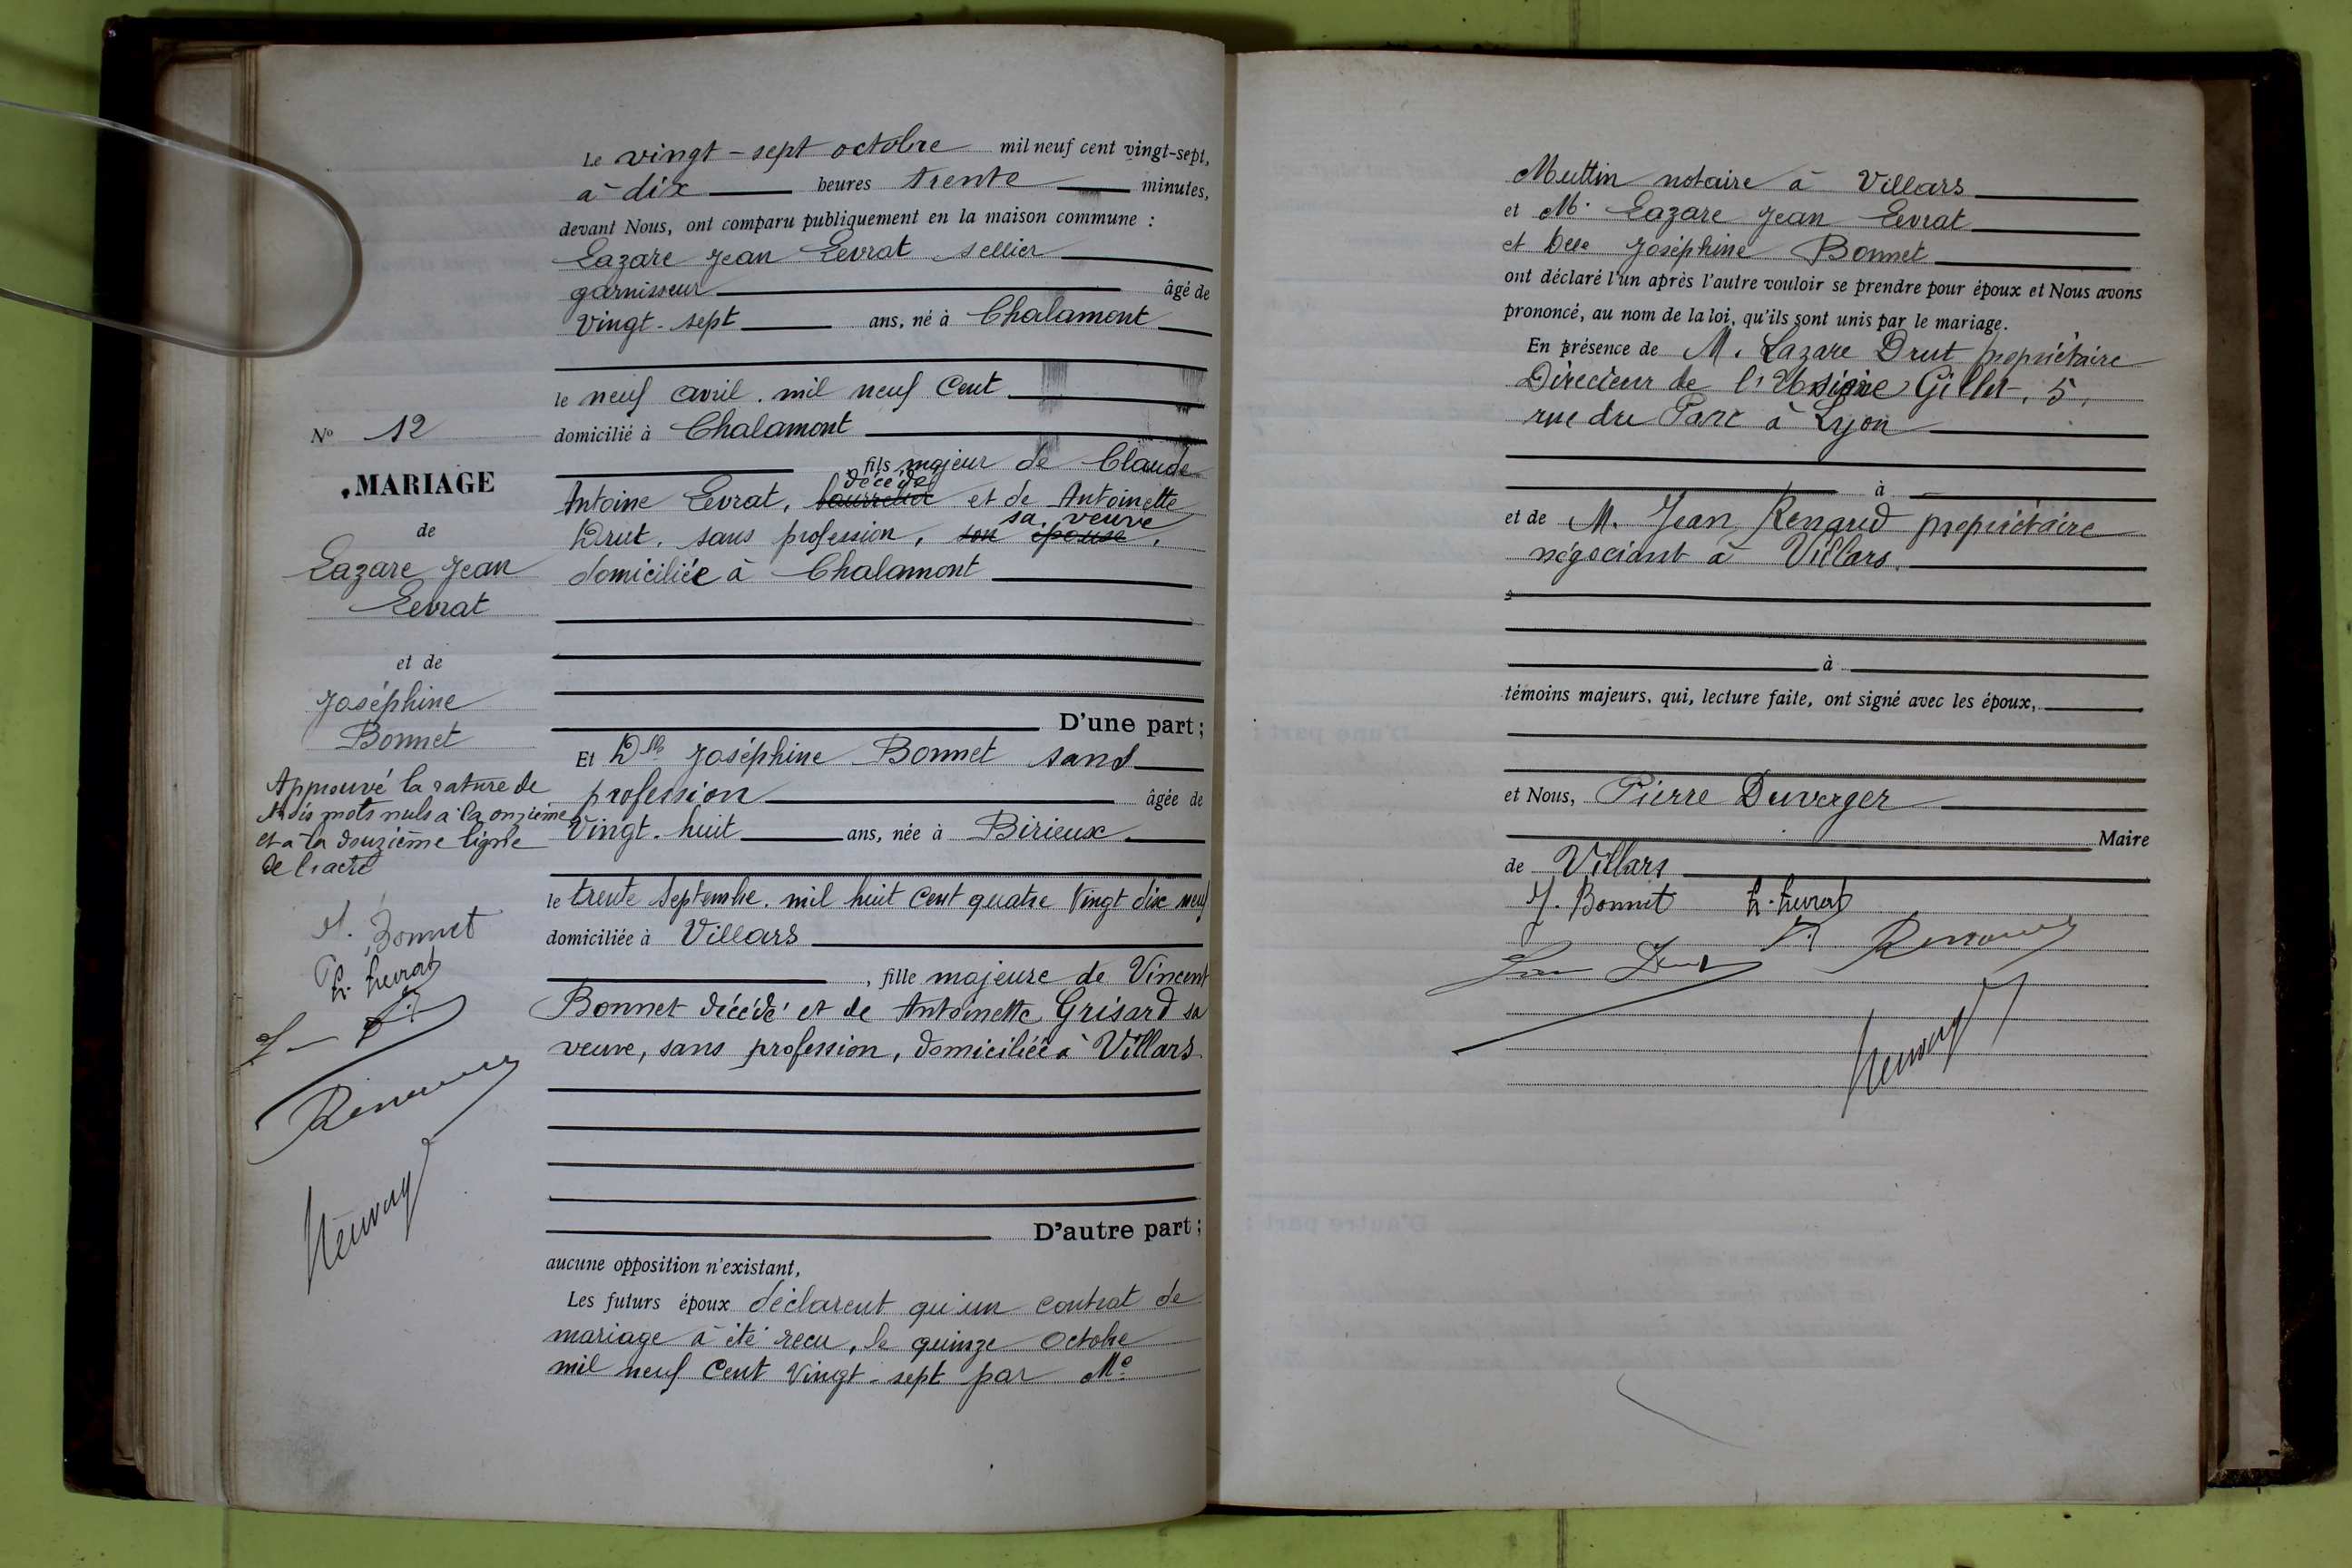 Le vingt-sept octobre mil neuf cent vingt-sept,
à dix heures trente minutes,
devant Nous, ont comparu publiquement en la maison commune :
Lazare Jean Levrat sellier
garnisseur âgé de
vingt-sept ans, né à Chalamont
le neuf avril. mil neuf cent
domicilié à Chalamont
fils majeur de Claude
décédé
Antoine Levrat, bourrelier et de Antoinette
sa veuve
Drut. sans profession, son épouse,
domiciliée à Chalamont
D'une part ;
Et Dlle Joséphine Bonnet sans
profession âgée de
Vingt-huit ans, née à Birieux
le trente Septembre. mil huit cent quatre Vingt dix neuf
domiciliée à Villars
, fille majeure de Vincent
Bonnet décédé et de Antoinette Grisard sa
veuve, sans profession, domiciliée à Villars
D'autre part ;
aucune opposition n'existant,
Les futurs époux déclarent qu'un contrat de
mariage à été recu, le quinze Octobre
mil neuf cent Vingt-sept par Me
No 12
MARIAGE
de
Lazare Jean
Levrat
et de
Joséphine
Bonnet
Approuvé la rature de
trois mots nuls à la onzième
et à la douzième ligne
de l'acte
J. Bonnet
L. Levrat
Muttin notaire à Villars
et M. Lazare Jean Levrat
et Delle Joséphine Bonnet
ont déclaré l'un après l'autre vouloir se prendre pour époux et Nous avons
prononcé, au nom de la loi, qu'ils sont unis par le mariage.
En présence de M. Lazare Drut propriétaire
Directeur de l'Usine Gillet, 5,
rue du Parc à Lyon
à
et de M. Jean Renaud propriétaire
négociant à Villars.
à
témoins majeurs, qui, lecture faite, ont signé avec les époux,
et Nous, Pierre Duverger
Maire
de Villars
J. Bonnet L. Levrat